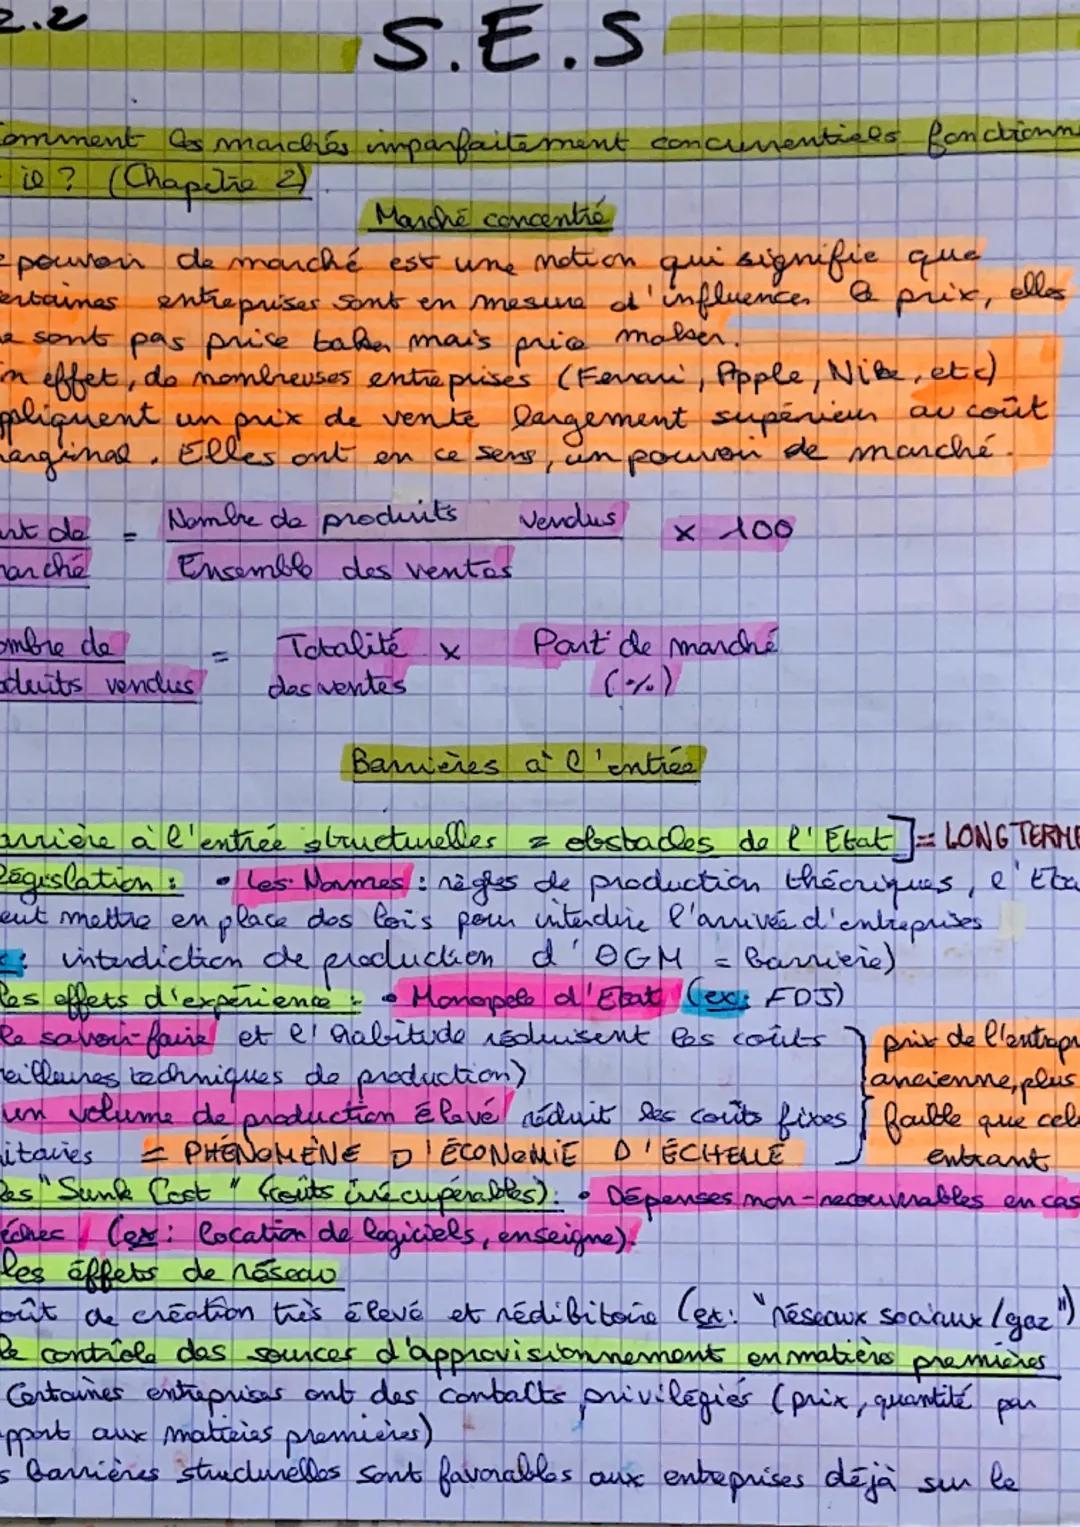 2.2
S.E.S
omment les marchés imparfaitement concurrentiels fonctionne
il ? (Chapitre 2)
Marché concentré
e pouvoir de marché est une notion qui signifie que
ertaines entreprises sont en mesure d'influencer le prix, elles
e sont pas price taker mais price maker.
n effet, de nombreuses entreprises (Ferrari, Apple, Nike, etc)
ppliquent un prix de vente largement supérieur au coût
arginal. Elles ont en ce sens, un pouvoir de marché.
art de marché = Nombre de produits vendus / Ensemble des ventes x 100
ombre de = Totalité x Part de marché
oduits vendus des ventes (%)
Barrières à l'entrée
arrière à l'entrée structurelles = obstacles de l'Etat ] = LONG TERME
Législation : • Les Normes : règles de production théoriques, l'Eta
eut mettre en place des lois pour interdire l'arrivée d'entreprises
x : interdiction de production d'OGM = barrière)
les effets d'expérience : • Monopole d'Etat (ex: FDJ)
le savoir-faire et l'habitude réduisent les coûts
eilleures techniques de production)
un volume de production élevé réduit les coûts fixes
itaires = PHÉNOMÈNE D'ÉCONOMIE D'ÉCHELLE
prix de l'entrepr
ancienne, plus
faible que cel
entrant
les "Sunk Cost" (coûts irrécupérables) : • Dépenses non-recouvrables en cas
échec (ex : location de logiciels, enseigne).
les éffets de réseau
oût de création très élevé et rédibitoire (ex : "réseaux sociaux / gaz")
le contrôle des sources d'approvisionnement en matières premières
Certaines entreprises ont des contacts privilégiés (prix, quantité par
pport aux matières premières)
s barrières structurelles sont favorables aux entreprises déjà sur le